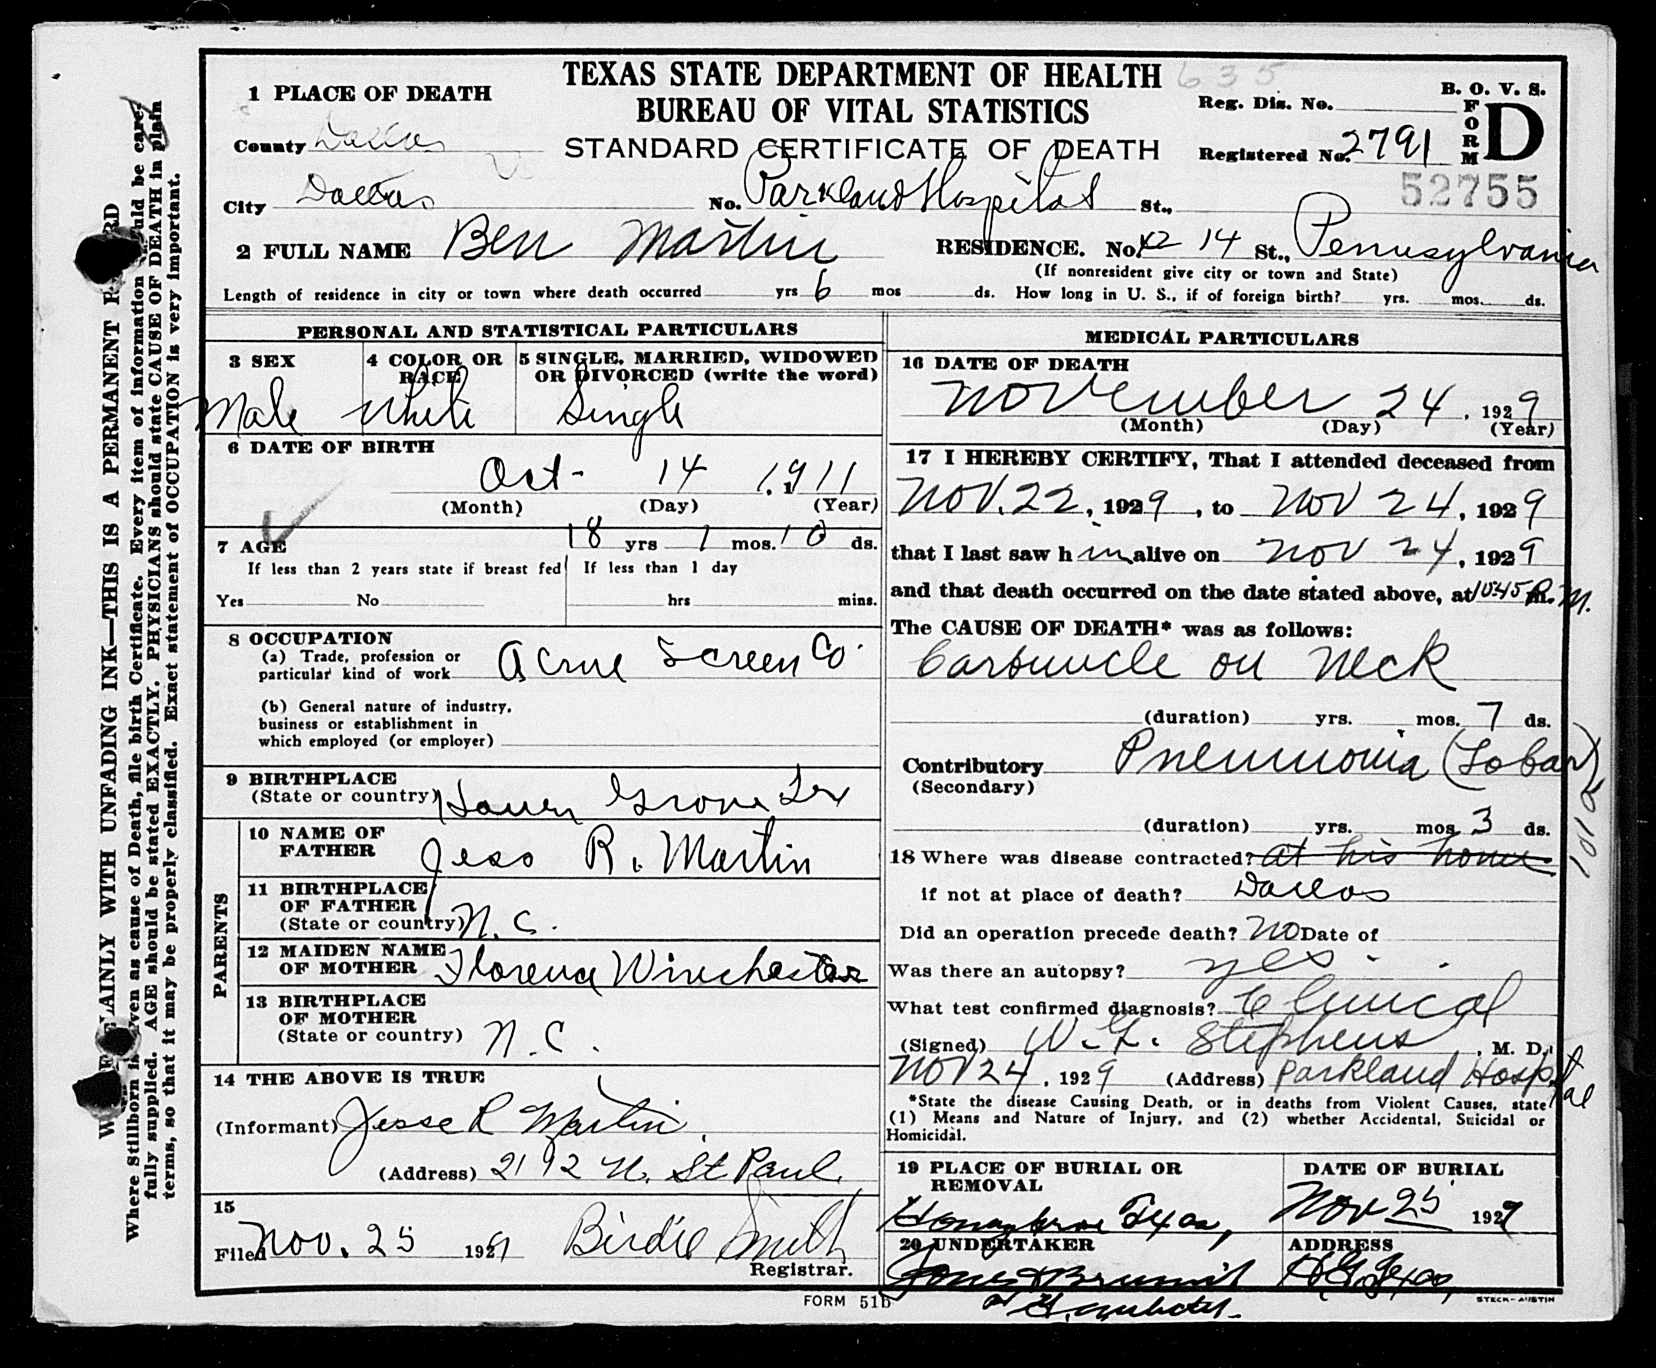 TEXAS STATE DEPARTMENT OF HEALTH
BUREAU OF VITAL STATISTICS
STANDARD CERTIFICATE OF DEATH
635
Reg. Dis. No.
B. O. V. S.
FORM D
Registered No. 2791
52755
1 PLACE OF DEATH
County Dallas
City Dallas No. Parkland Hospital St.,
2 FULL NAME Ben Martin RESIDENCE. No. 14 St., Pennsylvania
(If nonresident give city or town and State)
Length of residence in city or town where death occurred yrs 6 mos ds. How long in U. S., if of foreign birth? yrs. mos. ds.
PERSONAL AND STATISTICAL PARTICULARS
3 SEX
Male
4 COLOR OR RACE
White
5 SINGLE, MARRIED, WIDOWED
OR DIVORCED (write the word)
Single
6 DATE OF BIRTH
Oct- 14 1911
(Month) (Day) (Year)
7 AGE 18 yrs 1 mos. 10 ds.
If less than 2 years state if breast fed
Yes No
If less than 1 day
hrs mins.
8 OCCUPATION
(a) Trade, profession or
particular kind of work Acme Screen Co.
(b) General nature of industry,
business or establishment in
which employed (or employer)
9 BIRTHPLACE
(State or country) Grove Tex
PARENTS
10 NAME OF
FATHER Jess R. Martin
11 BIRTHPLACE
OF FATHER
(State or country) N. C.
12 MAIDEN NAME
OF MOTHER Florence Winchester
13 BIRTHPLACE
OF MOTHER
(State or country) N. C.
14 THE ABOVE IS TRUE
(Informant) Jesse R Martin
(Address) 2192 N. St Paul
15
Filed Nov. 25 1929 Birdie Smith
Registrar.
MEDICAL PARTICULARS
16 DATE OF DEATH
November 24, 1929
(Month) (Day) (Year)
17 I HEREBY CERTIFY, That I attended deceased from
Nov. 22, 1929, to Nov 24, 1929
that I last saw h im alive on Nov 24, 1929
and that death occurred on the date stated above, at 10:45 P. M.
The CAUSE OF DEATH* was as follows:
Carbuncle on Neck
(duration) yrs. mos. 7 ds.
Contributory Pneumonia (Lobar)
(Secondary)
101a
(duration) yrs. mos 3 ds.
18 Where was disease contracted? at his home
if not at place of death? Dallas
Did an operation precede death? No Date of
Was there an autopsy? yes.
What test confirmed diagnosis? Clinical
(Signed) W. L. Stephens, M. D.
Nov 24, 1929 (Address) Parkland Hospital
*State the disease Causing Death, or in deaths from Violent Causes, state
(1) Means and Nature of Injury, and (2) whether Accidental, Suicidal or
Homicidal.
19 PLACE OF BURIAL OR
REMOVAL
Honeygrove Texas,
DATE OF BURIAL
Nov 25 1929
20 UNDERTAKER
ADDRESS
FORM 51B
STECK-AUSTIN
PLAINLY WITH UNFADING INK—THIS IS A PERMANENT
Where Stillborn is given as cause of Death, file birth Certificate. Every item of information should be care-
fully supplied. AGE should be stated EXACTLY. PHYSICIANS should state CAUSE OF DEATH in plain
terms, so that it may be properly classified. Exact statement of OCCUPATION is very important.